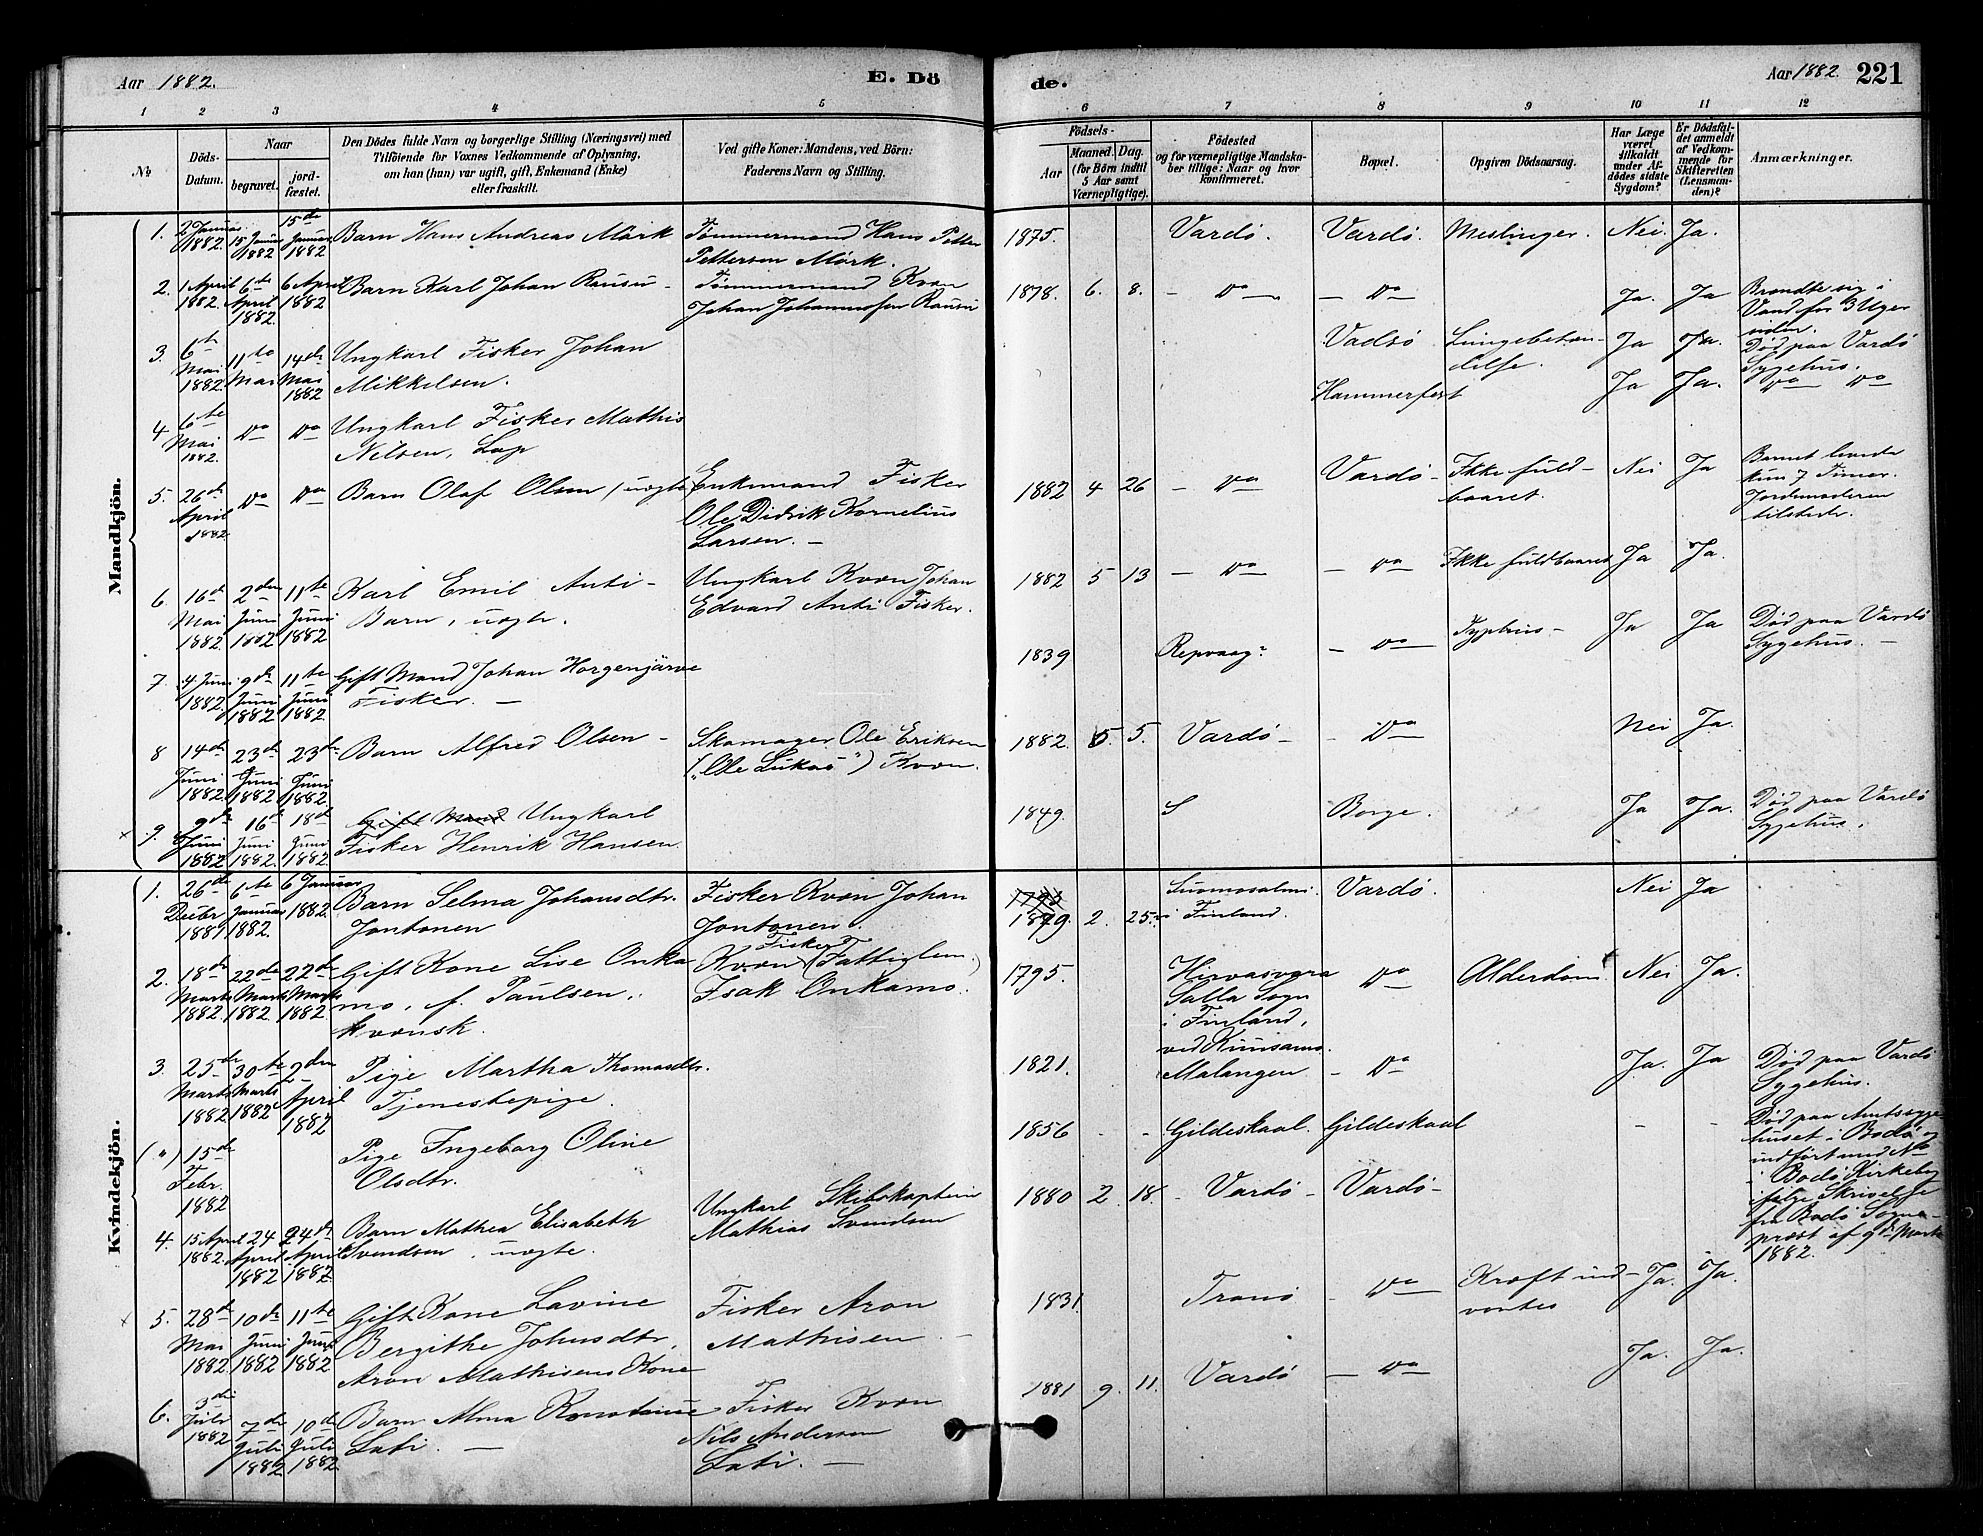 Aar 1882.
E. Dö
de.
Aar 1882.
221
1 2 3 4 5 6 7 8 9 10 11 12
No
Döds-Datum.
Naar
begravet.
jord-fæstet.
Den Dödes fulde Navn og borgerlige Stilling (Næringsvei) med
Tilföiende for Voxnes Vedkommende af Oplysning,
om han (hun) var ugift, gift, Enkemand (Enke)
eller fraskilt.
Ved gifte Koner: Mandens, ved Börn:
Faderens Navn og Stilling.
Födsels-
Aar
Maaned. Dag.
(for Börn indtil
5 Aar samt
Værnepligtige).
Födested
og for værnepligtige Mandska-
ber tillige: Naar og hvor
konfirmeret.
Bopæl.
Opgiven Dödsaarsag.
Har Læge
været
tilkaldt
under Af-
dödes sidste
Sygdom?
Er Dödsfal-
det anmeldt
af Vedkom-
mende for
Skifteretten
(Lensman-
den)?
Anmærkninger.
Mandkjön.
1. 2 Januar 1882. 15 Januar 1882 15de Januar 1882 Barn Hans Andreas Mörk Tømmermand Hans Petter Pettersen Mörk. 1875. Vardö. Vardö. Meslinger. Nei. Ja.
2. 1 April 1882. 6te April 1882. 6 April 1882 Barn Karl Johan Rausu - Tømmermand Kvæn Johan Johannessen Rausu 1878. 6. 8. - Do - - Do - Ja. Ja Brændte sig i Vand for 3 Uger siden.
3. 6te Mai 1882. 11te Mai 14de Mai 1882 Ungkarl Fisker Johan Mikkelsen. Vadsö Lungebetændelse. Ja Ja. Död paa Vardö Sygehus.
4 6te Mai 1882. Do Do Ungkarl Fisker Mathis Nilsen, Lap Hammerfest Ja Ja. Do Do
5. 26de April 1882 Do Do Barn Olaf Olsen, uægte Enkemand Fisker Ole Didrik Kornelius Larsen. - 1882 4 26 - Do - Vardö - Ikke fuldbaaret. Nei Ja Barnet levede kun 7 Timer. Jordemoderen tilstede.
6. 16de Mai 1882. 2den Juni 1882 11te Juni 1882 Karl Emil Anti - Barn, uægte. Ungkarl Kvæn Johan Edvard Anti Fisker. 1882 5 13 - Do - - Do Ikke fuldbaaret Ja Ja.
7. 4 Juni 1882. 9de Juni 1882 11te Juni 1882. Gift Mand Johan Horgenjärve Fisker. - 1839 Repvaag - Do Typhus - Ja Ja Död paa Vardö Sygehus. -
8 14de Juni 1882. 23de Juni 1882 23de Juni 1882. Barn Alfred Olsen - Skomager Ole Eriksen ("Ole Lukas") Kvæn. 1882. 5. 5. Vardö - - Do Nei Ja.
9. 9de Juni 1882 16de Juni 1882. 18de Juni 1882. Gift Mand Ungkarl Fisker Henrik Hansen. 1849. S Borge. Ja Ja. Död paa Vardö Sygehus.
Kvindekjön.
1. 26de Decbr 1881 6te Januar 1882. 6 Januar 1882. Barn Selma Johansdtr. Jontonen Fisker Kvæn Johan Jontonen. 1795 1879. 2. 25. Suomosalmi i Finland. Vardö. Nei Ja
2. 18de Marts 1882. 22de Marts 1882. 22de Marts 1882 Gift Kone Lise Onkamo, f. Paulsen, Kvænsk. Fisker Kvæn (Fattiglem) Isak Onkamo. 1795. Hirvasvara Salla Sogn i Finland, ved Kuusamo. Do Alderdom Nei Ja.
3. 25de Marts 1882 30te Marts 1882 2den April 1882 Pige Martha Thomasdtr. Tjenestepige. 1821. Malangen - Do Ja. Ja Död paa Vardö Sygehus.
(") 15de Febr. 1882 Pige Ingeborg Oline Olsdtr. 1856 - - Gildeskaal. Gildeskaal - - Död paa Amtssygehuset i Bodö og indfört med No - i Bodö Kirkebog ifølge Skrivelse fra Bodö Sognepræst af 9de Marts 1882.
4. 15 April 1882. 24 April 1882 24de April 1882. Barn Mathea Elisabeth Svendsen, uægte. Ungkarl Skibskaptein Mathias Svendsen 1880 2 18 - Vardö - Vardö -
5. 28de Mai 1882 10de Juni 1882 11te Juni 1882. Gift Kone Lavine Bergithe Johnsdtr, Aron Mathisens Kone Fisker Aron Mathisen - 1831. Tranö - Do Kræft indvortes Ja. Ja.
6. 3die Juli 1882 7de Juli 1882 10de Juli 1882 Barn Alma Konstanse Lati. - Fisker Kvæn Nils Andersen Lati. - 1881 9. 11. Vardö - Do Ja. Ja.